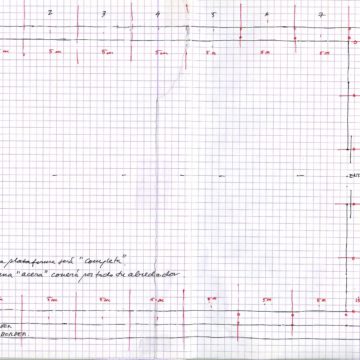 2 3 4 5 6 7
5m 5m 5m 5m 5m 5m
plataforma será "completa"
una "acera" correrá por todo su alrededor
5m 5m 5m 5m 5m